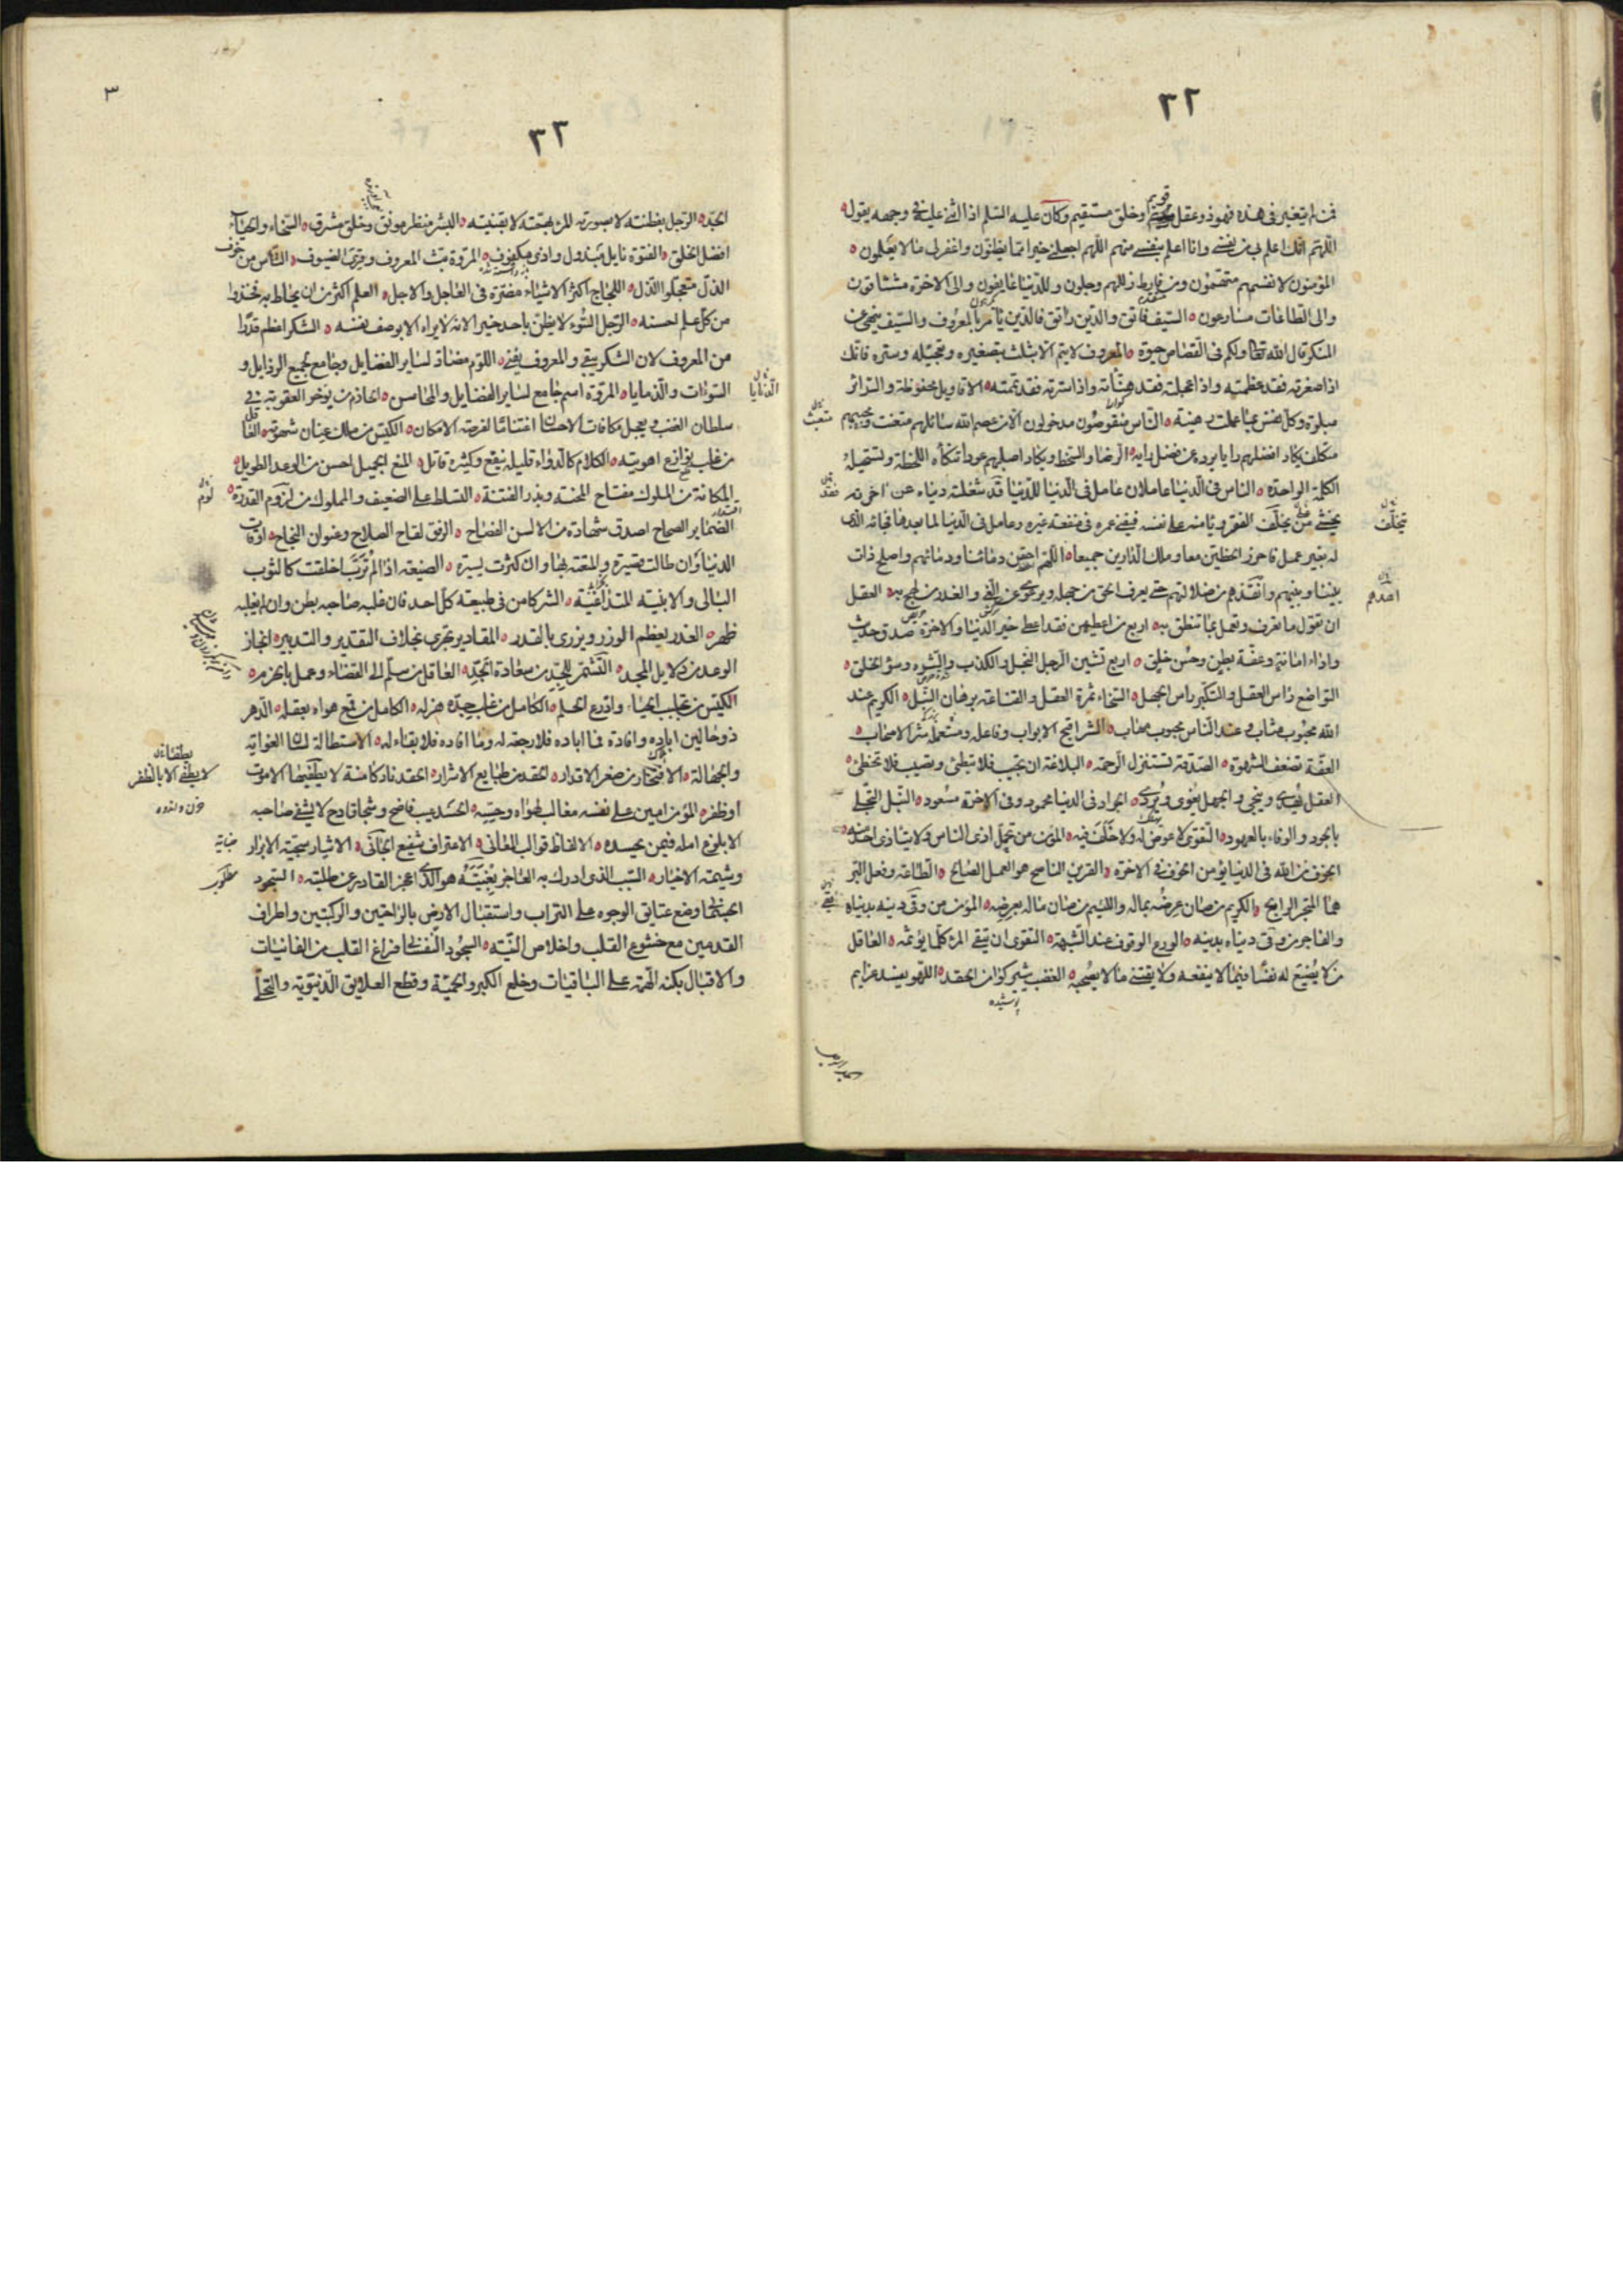 ٢٢
فمن لم يتغير فى هذه فهو ذو عقل قويم وخلق مستقيم وكان عليه السلم اذا اثنى عليه فى وجهه يقول
اللهم انك اعلم بى من نفسى وانا اعلم بنفسى منهم اللهم اجعلنى خيرا مما يظنون واغفر لى ما لا يعلمون
المؤمنون لانفسهم متهمون ومن فارط زللهم وجلون وللدنيا عايفون والى الاخرة مشتاقون
والى الطاعات مسارعون السيف فاتق والدين راتق فالدين يامر بالمعروف والسيف ينهى عن
المنكر قال الله تعالى ولكم فى القصاص حيوة المعروف لا يتم الا بثلث بتصغيره وتعجيله وستره فانك
اذا صغرته فقد عظمته واذا عجلته فقد هنأته واذا سترته فقد تممته الاقاويل محفوظة والسرائر
مبلوة وكل نفس بما عملت رهينة الناس منقوصون مدخولون الا من عصم الله سائلهم متعنت ومجيبهم
متكلف يكاد افضلهم رايا يرده عن فضل رايه الرضا والسخط ويكاد اصلبهم عودا تنكأه اللحظة وتستحيله
الكلمة الواحدة الناس فى الدنيا عاملان عامل فى الدنيا للدنيا قد شغلته دنياه عن اخرته
يخشى على من يخلف الفقر ويامنه على نفسه فيفنى عمره فى منفعة غيره وعامل فى الدنيا لما بعدها فجائه الذى
له بغير عمل فاحرز الحظين معا وملك الدارين جميعا اللهم احقن دمائنا ودمائهم واصلح ذات
بيننا وبينهم وانقذهم من ضلالتهم حتى يعرف الحق من جهله ويرعوى عن الغى والغدر من لهج به العقل
ان تقول ما تعرف وتعمل بما تنطق به اربع من اعطيهن فقد اعطى خير الدنيا والاخرة صدق حديث
واداء امانة وعفة بطن وحسن خلق اربع تشين الرجل البخل والكذب والشره وسؤ الخلق
التواضع راس العقل والتكبر راس الجهل السخاء ثمرة العقل والقناعة برهان النبل الكريم عند
الله محبور مثاب وعند الناس محبوب مهاب الشر اقبح الابواب وفاعله ومستعمله شر الاصحاب
العفة تضعف الشهوة الصدقة تستنزل الرحمة البلاغة ان تجيب فلا تبطئ وتصيب فلا تخطئ
العقل يهدى وينجى والجهل يغوى ويردى الجواد فى الدنيا محمود وفى الاخرة مسعود النبل التحلى
بالجود والوفاء بالعهود التقوى لا عوض له ولا خلف فيه المؤمن من تحمل اذى الناس ولا يتاذى احد منه
الخوف من الله فى الدنيا يؤمن الخوف فى الاخرة القرين الناصح هو العمل الصالح الطاعة وفعل البر
هما المتجر الرابح الكريم من صان عرضه بماله واللئيم من صان ماله بعرضه المؤمن من وقى دينه بدنياه
والفاجر من وقى دنياه بدينه الورع الوقوف عند الشبهة التقوى ان يتقى المرء كلما يؤثمه العاقل
من لا يضيع له نفسا فيما لا ينفعه ولا يقتنى ما لا يصحبه الغضب يثير كوامن الحقد اللهو يفسد عزايم
٢٣
٣
الجد الرجل بفطنته لا بصورته المرء بهمته لا بقنيته البشر منظر مونق وخلق مشرق السخاء والحياء
افضل الخلق الفتوة نايل مبذول واذى مكفوف المروة بث المعروف وقرى الضيوف الناس من خوف
الذل متعجلوا الذل اللجاج اكثر الاشياء مضرة فى العاجل والاجل العلم اكثر من ان يحاط به فخذوا
من كل علم احسنه الرجل السوء لا يظن باحد خيرا لانه لا يراه الا بوصف نفسه الشكر اعظم قدرا
من المعروف لان الشكر يبقى والمعروف يفنى اللؤم مضاد لساير الفضايل وجامع لجميع الرذايل و
السوءات والدنايا المروة اسم جامع لساير الفضايل والمحاسن الحازم من يؤخر العقوبة فى
سلطان الغضب ويعجل مكافات الاحسان اغتناما لفرصة الامكان الكيس من ملك عنان شهوته العاقل
من غلب نوازع اهويته الكلام كالدواء قليله ينفع وكثيره قاتل المنع الجميل احسن من الوعد الطويل
المكانة من الملوك مفتاح المحنة وبذر الفتنة التسلط على الضعيف والمملوك من لزوم القدرة
الضماير الصحاح اصدق شهادة من الالسن الفصاح الرفق لقاح الصلاح وعنوان النجاح اوقات
الدنيا وان طالت قصيرة والمتعة بها وان كثرت يسيرة الصنيعة اذا لم ترب اخلقت كالثوب
البالى والابنية المتداعية الشر كامن فى طبيعة كل احد فان غلبه صاحبه بطن وان لم يغلبه
ظهر الغدر يعظم الوزر ويزرى بالقدر المقادير تجرى بخلاف التقدير والتدبير انجاز
الوعد من دلايل المجد التشمر للجد من سعادة الجد العاقل من سلم الى القضاء وعمل بالحزم
الكيس من تجلبب الحياء وادرع الحلم الكامل من غلب جده هزله الكامل من قمع هواه بعقله الدهر
ذو حالين ابادة وافادة فما اباده فلا رجعة له وما افاده فلا بقاء له الاستطالة لسان الغواية
والجهالة الافتخار من صغر الاقدار الحقد من طبايع الاشرار الحقد نار كامنة لا يطفيها الا موت
او ظفر المؤمن امين على نفسه مغالب لهواه وحسه الحسد عيب فاضح وشجا قادح لا يشفى صاحبه
الا بلوغ امله فيمن يحسده الالفاظ قوالب المعانى الاعتراف شفيع الجانى الايثار سجية الابرار
وشيمة الاخيار السبب الذى ادرك به العاجز بغيته هو الذى اعجز القادر عن طلبته السجود
الجسمانى وضع عتايق الوجوه على التراب واستقبال الارض بالراحتين والركبتين واطراف
القدمين مع خشوع القلب واخلاص النية السجود النفسانى فراغ القلب من الفانيات
والاقبال بكنه الهمة على الباقيات وخلع الكبر والحمية وقطع العلايق الدنيوية والتحلى